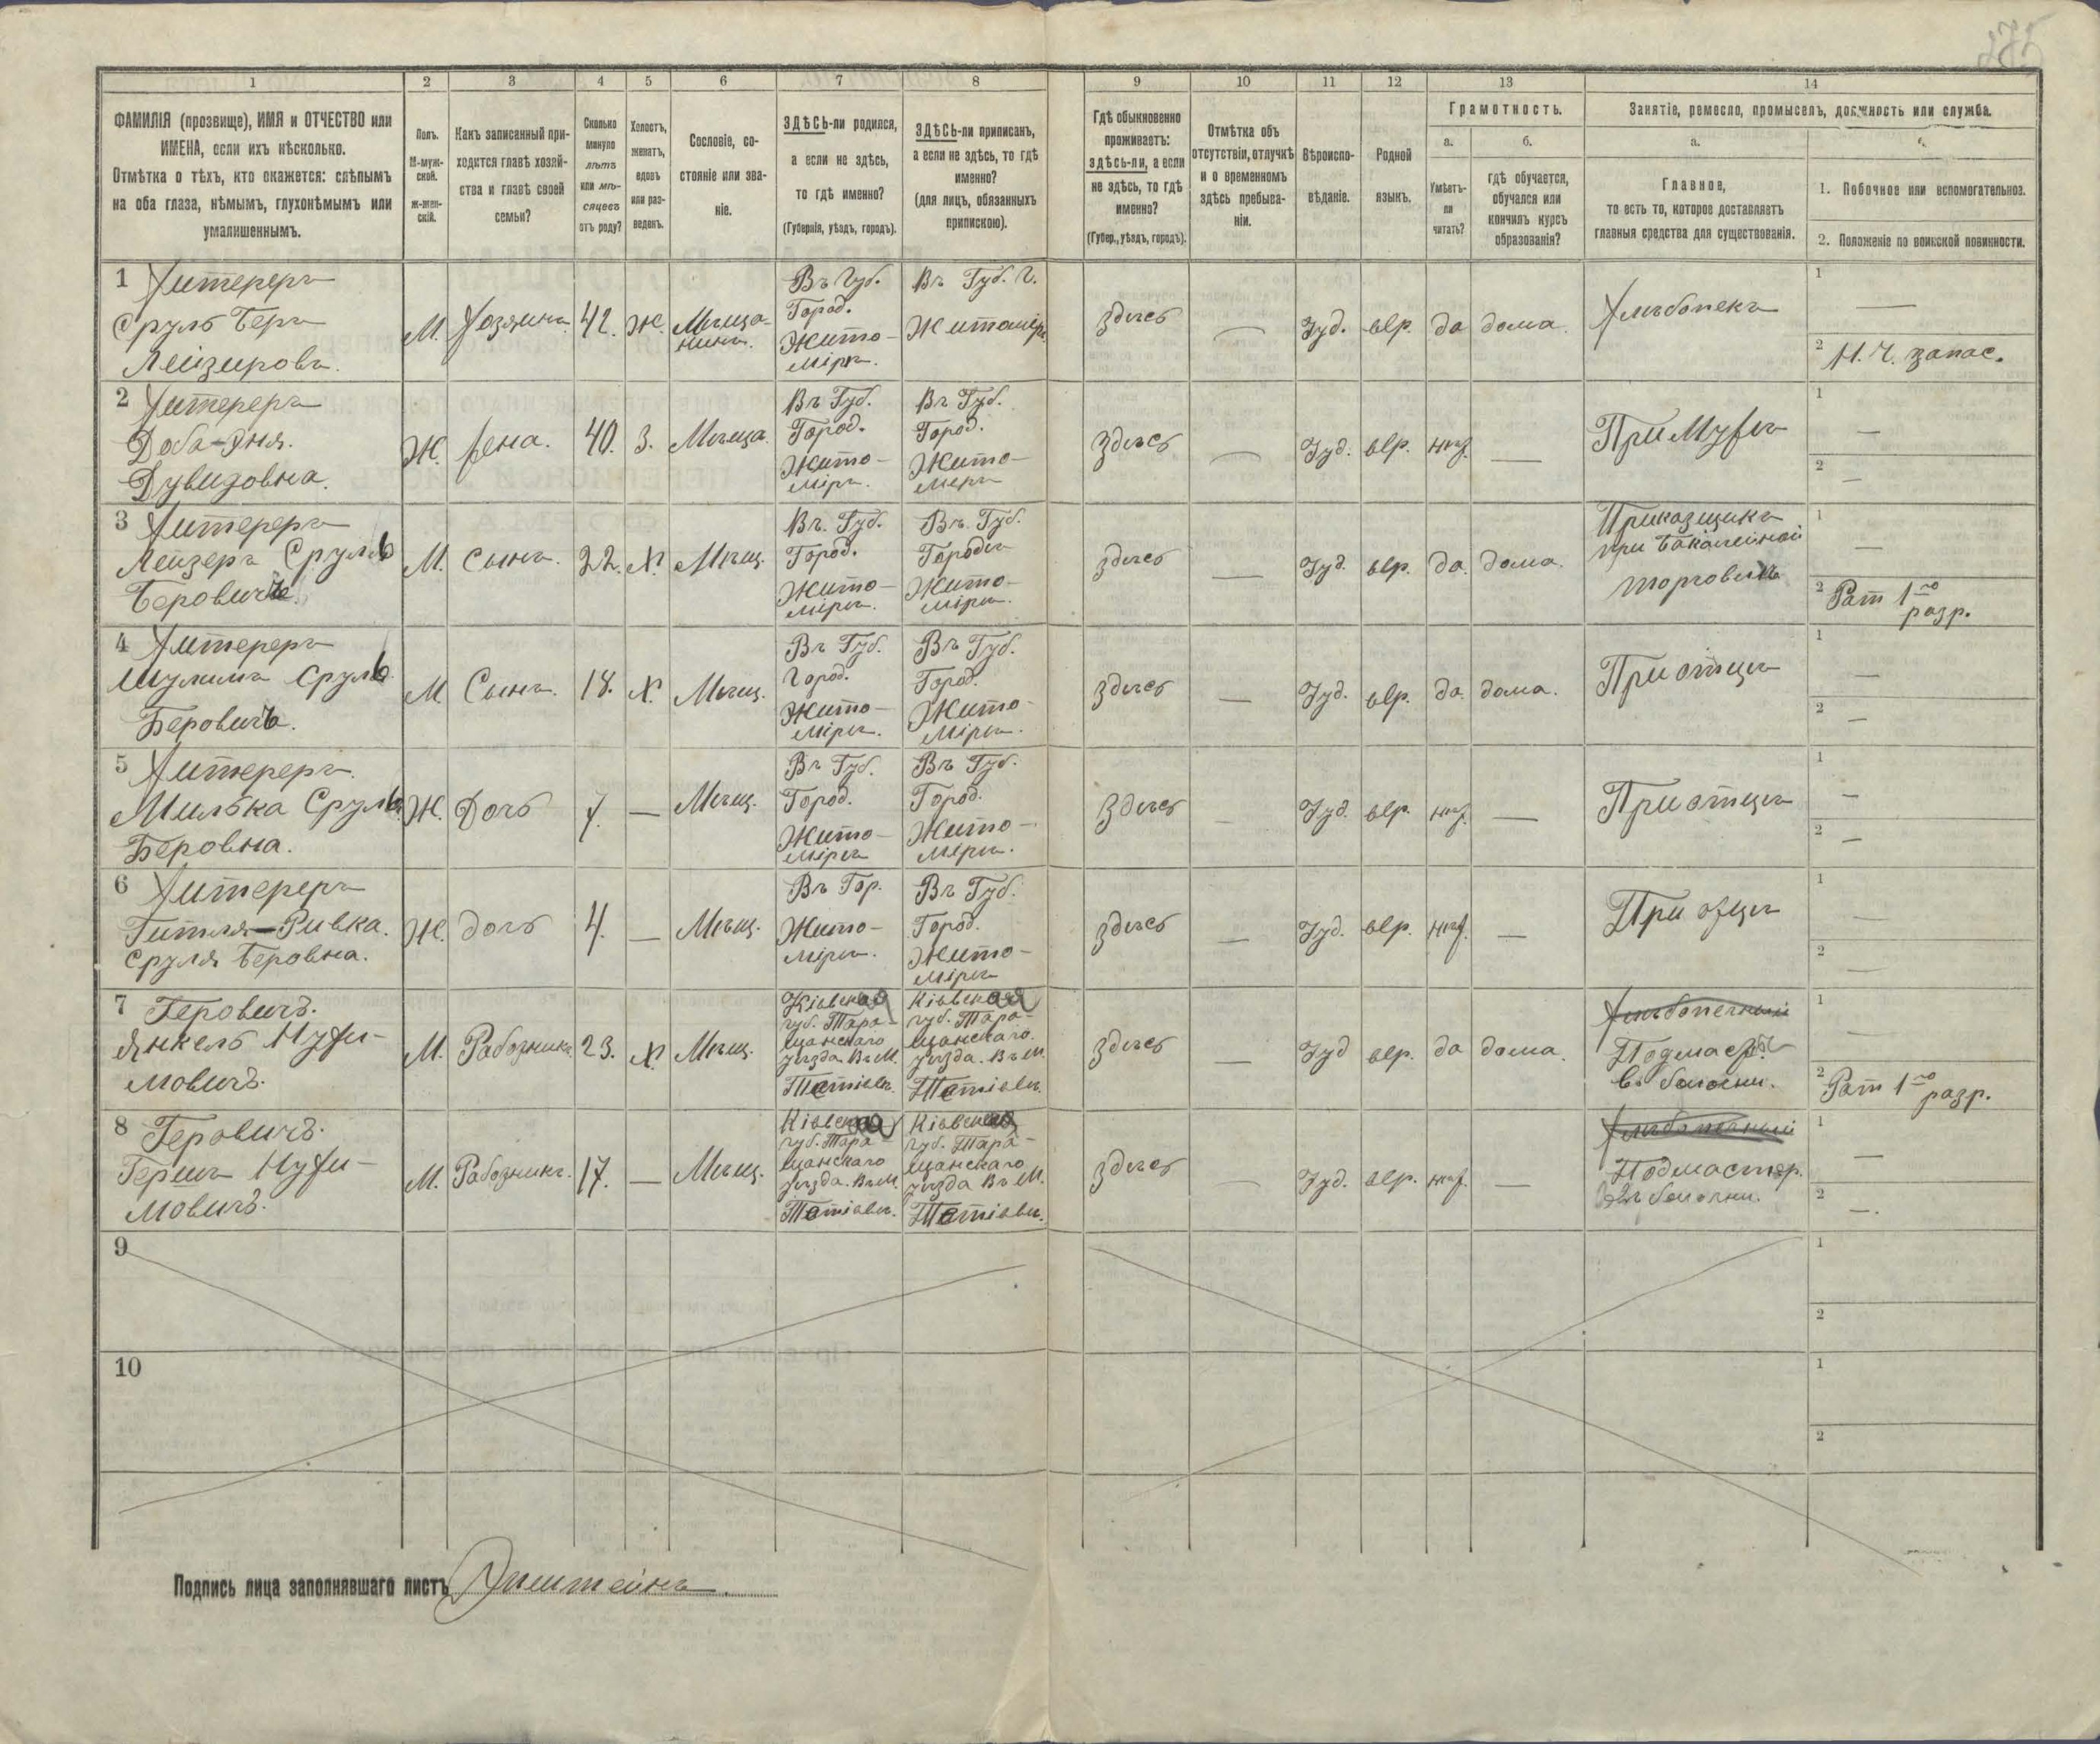 1 2 3 4 5 6 7 8 9 10 11 12 13 14
ФАМИЛІЯ (прозвище), ИМЯ и ОТЧЕСТВО или
ИМЕНА, если ихъ нѣсколько.
Отмѣтка о тѣхъ, кто окажется: слѣпымъ
на оба глаза, нѣмымъ, глухонѣмымъ или
умалишеннымъ.
Полъ.
М-муж-
ской.
ж-жен-
скій.
Какъ записанный при-
ходится главѣ хозяй-
ства и главѣ своей
семьи?
Сколько
минуло
лѣтъ
или мѣ-
сяцевъ
отъ роду?
Холостъ,
женатъ,
вдовъ
или раз-
веденъ.
Сословіе, со-
стояніе или зва-
ніе.
ЗДѢСЬ-ли родился,
а если не здѣсь,
то гдѣ именно?
(Губернія, уѣздъ, городъ).
ЗДѢСЬ-ли приписанъ,
а если не здѣсь, то гдѣ
именно?
(для лицъ, обязанныхъ
припискою).
Гдѣ обыкновенно
проживаетъ:
здѣсь-ли, а если
не здѣсь, то гдѣ
именно?
(Губер., уѣздъ, городъ).
Отмѣтка объ
отсутствіи, отлучкѣ
и о временномъ
здѣсь пребыва-
ніи.
Вѣроиспо-
вѣданіе.
Родной
языкъ.
Грамотность.
а.
Умѣетъ-
ли
читать?
б.
гдѣ обучается,
обучался или
кончилъ курсъ
образованія?
Занятіе, ремесло, промыселъ, должность или служба.
а.
Главное,
то есть то, которое доставляетъ
главныя средства для существованія.
1. Побочное или вспомогательное.
2. Положеніе по воинской повинности.
1
Сруль Беръ
Лейзеровъ.
М.
Хозяинъ.
42.
Ж.
Мѣща-
нинъ.
Въ Губ.
Город.
Жито-
міръ.
Въ Губ. Г.
Житоміръ
здѣсь
Іуд.
евр.
да
дома.
Хлѣбопекъ
1
—
2 Н. Ч. запас.
2
Доба-Эня.
Дувидовна.
Ж.
жена.
40.
З.
Мѣща.
Въ Губ.
Город.
Жито-
міръ.
Въ Губ.
Город.
Жито-
міръ
здѣсь
Іуд.
евр.
нѣт.
—
При Мужѣ
1
—
2
—
3
Лейзеръ Сруль
Беровичъ.
М.
Сынъ.
22.
Х.
Мѣщ.
Въ. Губ.
Город.
Жито-
міръ.
Въ. Губ.
Городѣ
Жито-
міръ.
здѣсь
—
Іуд.
евр.
да.
дома.
Приказщикъ
при бакалейной
торговлѣ
1
—
2 Рат 1го
разр.
4
Шулимъ Сруль
Беровичъ.
М
Сынъ.
18.
Х.
Мѣщ.
Въ Губ.
Город.
Жито-
міръ.
Въ Губ.
Город.
Жито-
міръ.
здѣсь
—
Іуд.
евр.
да.
дома.
При отцѣ
1
—
2
—
5
Милька Сруль
Беровна.
Ж.
Дочь
7.
—
Мѣщ.
Въ Губ.
Город.
Жито-
міръ
Въ Губ.
Город.
Жито-
міръ.
здѣсь
—
Іуд.
евр.
нѣт.
—
При отцѣ
1
—
2
—
6
Гитля-Ривка.
Сруля Беровна.
Ж.
дочь
4.
—
Мѣщ.
Въ Гор.
Жито-
міръ.
Въ Губ.
Город.
Жито-
міръ
здѣсь
—
Іуд.
евр.
нѣт.
—
При отцѣ
1
—
2
—
7 Геровичъ.
Янкель Нухи-
мовичъ.
М.
Работникъ.
23.
Х.
Мѣщ.
Кіевская
губ. Тара-
щанскаго
уѣзда. Въ М.
Тетіевъ.
Кіевская
губ. Тара-
щанскаго.
уѣзда. Въ М.
Тетіевъ.
здѣсь
—
Іуд
евр.
да
дома.
Подмастер.
въ
1
—
2 Рат 1го
разр.
8 Геровичъ.
Гершъ Нухи-
мовичъ.
М.
Работникъ.
17.
—
Мѣщ.
Кіевская
губ. Тара-
щанскаго
уѣзда. Въ М.
Тетіевъ.
Кіевская
губ. Тара-
щанскаго
уѣзда Въ М.
Тетіевъ.
здѣсь
Іуд.
евр.
нѣт.
—
Подмастер.
1
—
2
—.
9
1
2
10
1
2
Подпись лица заполнявшаго листъ Эпштейнъ.